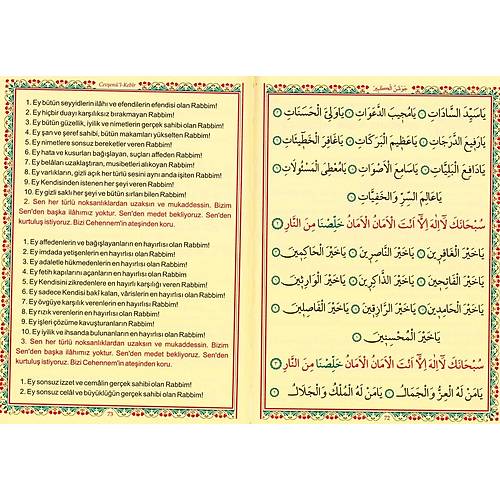 Cevşenü'l-Kebîr
1. Ey bütün seyyidlerin ilâhı ve efendilerin efendisi olan Rabbim!
2. Ey hiçbir duayı karşılıksız bırakmayan Rabbim!
3. Ey bütün güzellik, iyilik ve nimetlerin gerçek sahibi olan Rabbim!
4. Ey şan ve şeref sahibi, bütün makamları yükselten Rabbim!
5. Ey nimetlere sonsuz bereketler veren Rabbim!
6. Ey hata ve kusurları bağışlayan, suçları affeden Rabbim!
7. Ey belâları uzaklaştıran, musibetleri alıkoyan Rabbim!
8. Ey varlıkların, gizli açık her türlü sesini aynı anda işiten Rabbim!
9. Ey Kendisinden istenen her şeyi veren Rabbim!
10. Ey gizli saklı her şeyi ve bütün sırları bilen Rabbim!
2. Sen her türlü noksanlıklardan uzaksın ve mukaddessin. Bizim
Sen'den başka ilâhımız yoktur. Sen'den medet bekliyoruz. Sen'den
kurtuluş istiyoruz. Bizi Cehennem'in ateşinden koru.
1. Ey affedenlerin ve bağışlayanların en hayırlısı olan Rabbim!
2. Ey imdada yetişenlerin en hayırlısı olan Rabbim!
3. Ey adaletle hükmedenlerin en hayırlısı olan Rabbim!
4. Ey fetih kapılarını açanların en hayırlısı olan Rabbim!
5. Ey Kendisini zikredenlere en hayırlı karşılığı veren Rabbim!
6. Ey sadece Kendisi bakî kalan, vârislerin en hayırlısı olan Rabbim!
7. Ey övgüye karşılık verenlerin en hayırlısı olan Rabbim!
8. Ey rızık verenlerin en hayırlısı olan Rabbim!
9. Ey işleri çözüme kavuşturanların Rabbim!
10. Ey iyilik ve ihsanda bulunanların en hayırlısı olan Rabbim!
3. Sen her türlü noksanlıklardan uzaksın ve mukaddessin. Bizim
Sen'den başka ilâhımız yoktur. Sen'den medet bekliyoruz. Sen'den
kurtuluş istiyoruz. Bizi Cehennem'in ateşinden koru.
1. Ey sonsuz izzet ve cemâlin gerçek sahibi olan Rabbim!
2. Ey sonsuz celâl ve büyüklüğün gerçek sahibi olan Rabbim!
73
جوشن الكبير
يَاسَيِّدَ السَّادَاتِ ۝ يَامُجِيبَ الدَّعَوَاتِ ۝ يَاوَلِيَّ الْحَسَنَاتِ ۝
يَارَفِيعَ الدَّرَجَاتِ ۝ يَاعَظِيمَ الْبَرَكَاتِ ۝ يَاغَافِرَ الْخَطِيئَاتِ ۝
يَادَافِعَ الْبَلِيَّاتِ ۝ يَاسَامِعَ الْاَصْوَاتِ ۝ يَامُعْطِيَ الْمَسْئُولَاتِ ۝
يَاعَالِمَ السِّرِّ وَالْخَفِيَّاتِ
سُبْحَانَكَ لَا اِلٰهَ اِلَّا اَنْتَ الْاَمَانُ الْاَمَانُ خَلِّصْنَا مِنَ النَّارِ ٢
يَاخَيْرَ الْغَافِرِينَ ۝ يَاخَيْرَ النَّاصِرِينَ ۝ يَاخَيْرَ الْحَاكِمِينَ ۝
يَاخَيْرَ الْفَاتِحِينَ ۝ يَاخَيْرَ الذَّاكِرِينَ ۝ يَاخَيْرَ الْوَارِثِينَ ۝
يَاخَيْرَ الْحَامِدِينَ ۝ يَاخَيْرَ الرَّازِقِينَ ۝ يَاخَيْرَ الْفَاصِلِينَ ۝
يَاخَيْرَ الْمُحْسِنِينَ
سُبْحَانَكَ لَا اِلٰهَ اِلَّا اَنْتَ الْاَمَانُ الْاَمَانُ خَلِّصْنَا مِنَ النَّارِ ٣
يَامَنْ لَهُ الْعِزُّ وَالْجَمَالُ ۝ يَامَنْ لَهُ الْمُلْكُ وَالْجَلَالُ ۝
72